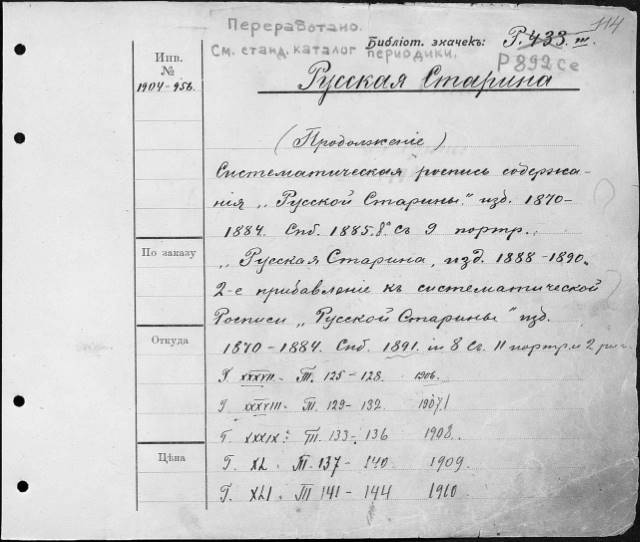 114
Переработано.
См. станд. каталог периодики.
Библіот. значекъ: Р. 433. III.
Р 892 се
Инв.
№
1904-956.
Русская Старина
(Продолженіе)
Систематическая роспись содержа-
нія „Русской Старины" изд. 1870-
1884. Спб. 1885. 8° съ 9 портр.
По заказу
„Русская Старина, изд. 1888-1890.
2-е прибавленіе къ систематической
Росписи „Русской Старины" изд.
Откуда
1870-1884. Спб. 1891. in 8 съ 11 портр. и 2
Г. XXXVII. Т. 125-128. 1906.
Г. XXXVIII. Т. 129-132. 1907
Г. XXXIX. Т. 133-136 1908.
Цѣна
Г. XL. Т. 137-140 1909.
Г. XLI. Т. 141-144 1910